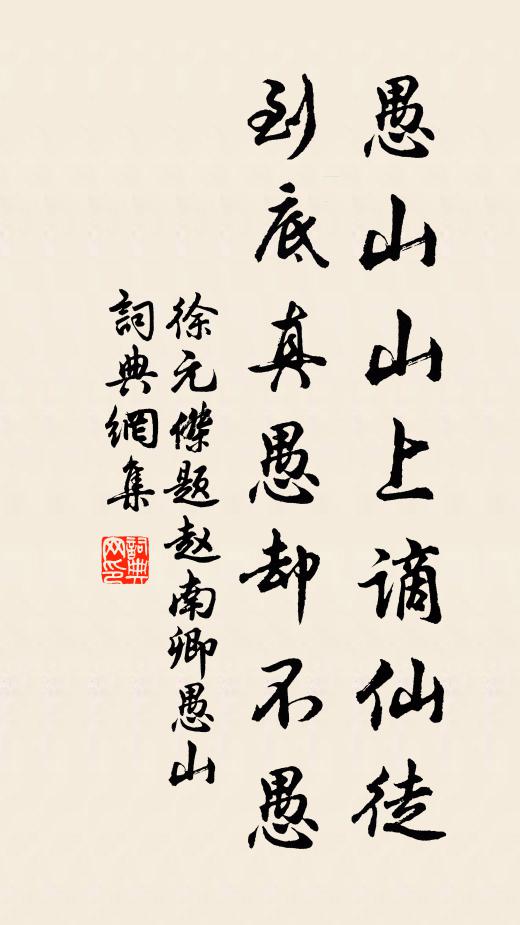 愚山山上謫仙徒
到底真愚却不愚
徐元傑题赵南卿愚山
詞典網集
詞典网印